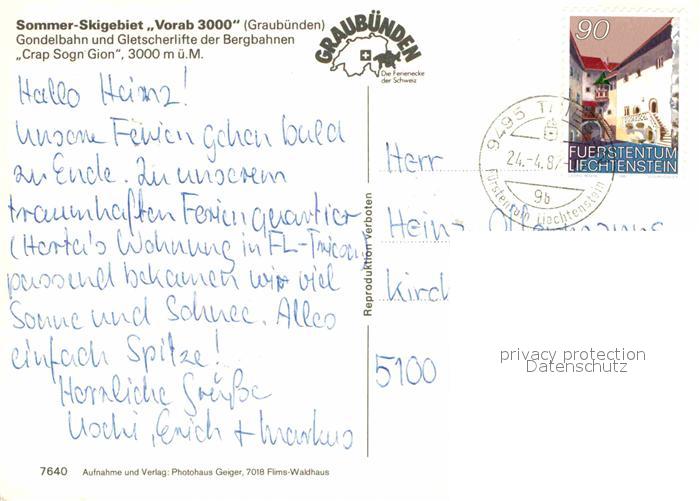 Sommer-Skigebiet „Vorab 3000“ (Graubünden)
Gondelbahn und Gletscherlifte der Bergbahnen
„Crap Sogn Gion“, 3000 m ü.M.
GRAUBÜNDEN
Die Ferienecke
der Schweiz
Hallo Heinz!
Unsere Ferien gehen bald
zu Ende. Zu unserem
traumhaften Ferienquartier
(Herta's Wohnung in FL-Triesen)
passend bekamen wir viel
Sonne und Schnee. Alles
einfach Spitze!
Herzliche Grüße
Uschi, Erich + Markus
7640 Aufnahme und Verlag: Photohaus Geiger, 7018 Flims-Waldhaus
Reproduktion Verboten
90
FUERSTENTUM
LIECHTENSTEIN
9495
24.-4.87
9b
Fürstentum Liechtenstein
Herr
Heinz
Kirch
5100
privacy protection
Datenschutz